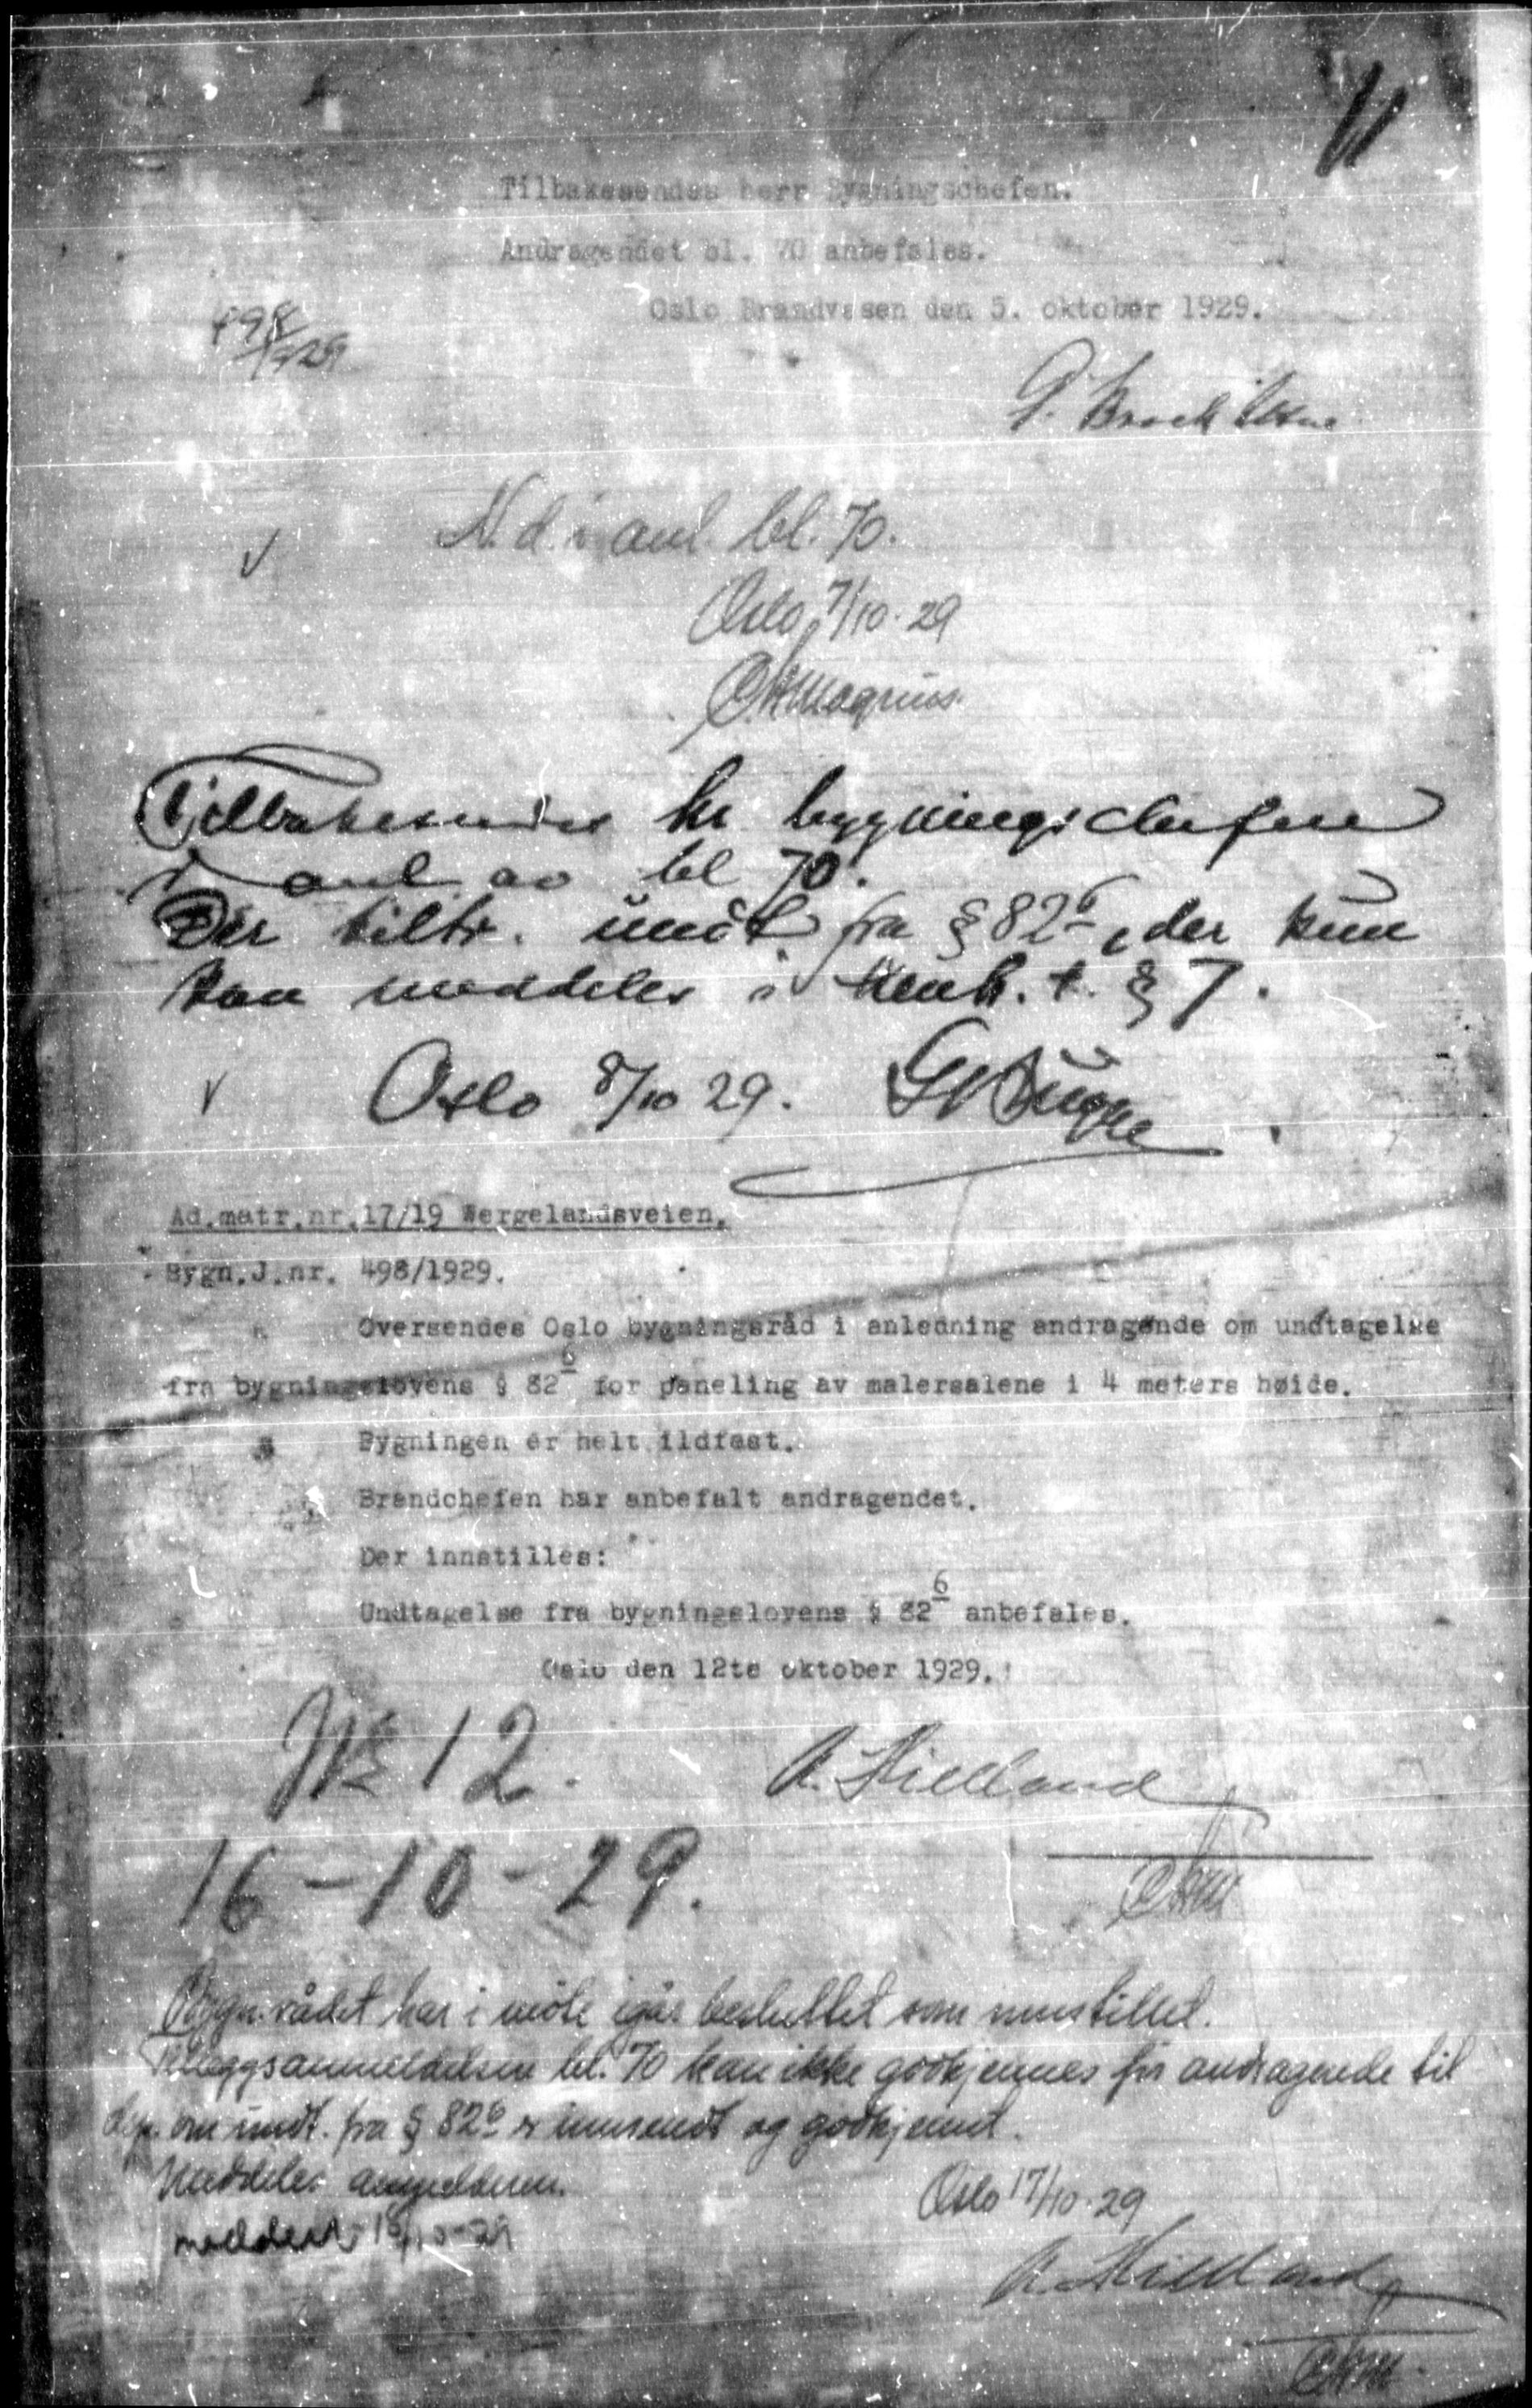 Tilbakesendes herr Bygningschefen.
Andragendet bl. 70 anbefales.
Oslo Brandvesen den 5. oktober 1929.
498/1929
G. Brock
N. d. i anl. bl. 70.
Oslo 7/10.29
Tilbakesendes hr bygningschefen
i anl av bl 70.
Der tiltr. undt. fra § 82⁶, der kun
kan meddeles i henh. t. § 7.
Oslo 8/10 29.
Ad.matr.nr.17/19 Wergelandsveien.
Bygn.J.nr. 498/1929.
Oversendes Oslo bygningsråd i anledning andragende om undtagelse
fra bygningslovens § 82⁶ for paneling av malersalene i 4 meters høide.
Bygningen er helt ildfast.
Brandchefen har anbefalt andragendet.
Der innstilles:
Undtagelse fra bygningslovens § 82⁶ anbefales.
Oslo den 12te oktober 1929.
№ 12.
A. Kielland
16-10-29.
Bygn.rådet har i møte igår besluttet som innstillet.
Tilleggsanmeldelsen bl. 70 kan ikke godkjennes før andragende til
dep. om undt. fra § 82⁶ er innsendt og godkjent.
Meddeles anmelderen.
Oslo 17/10.29
meddelt 18/10-29
A. Kielland